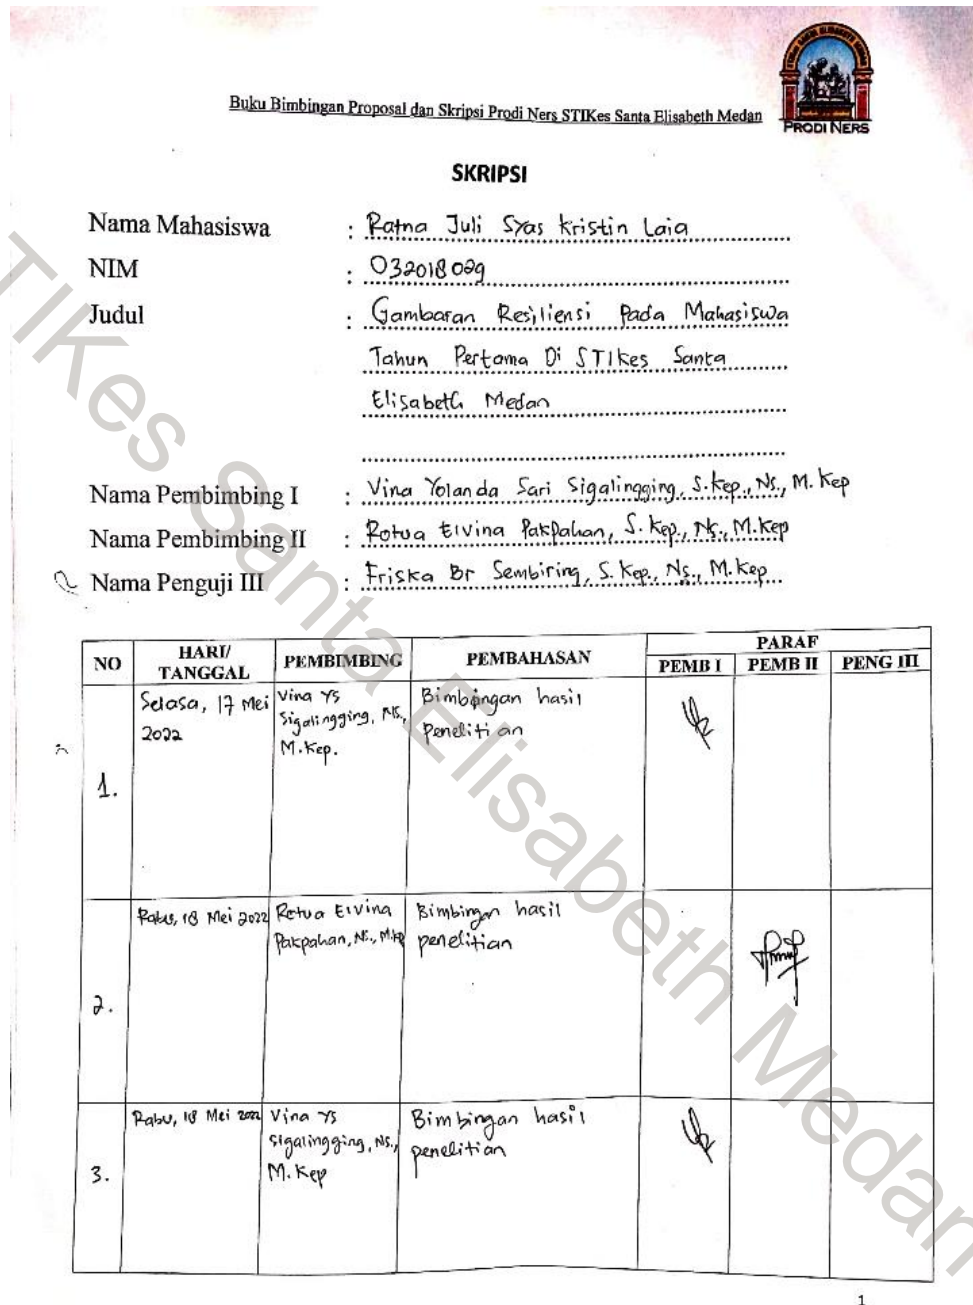 Buku Bimbingan Proposal dan Skripsi Prodi Ners STIKes Santa Elisabeth Medan
PRODI NERS
SKRIPSI
Nama Mahasiswa : Ratna Juli Syas Kristin Laia
NIM : 032018029
Judul : Gambaran Resiliensi Pada Mahasiswa
Tahun Pertama Di STIkes Santa
Elisabeth Medan
Nama Pembimbing I : Vina Yolanda Sari Sigalingging, S.Kep., Ns., M.Kep
Nama Pembimbing II : Rotua Elvina Pakpahan, S.Kep., Ns., M.Kep
Nama Penguji III : Friska Br Sembiring, S.Kep., Ns., M.Kep
NO HARI/ TANGGAL PEMBIMBING PEMBAHASAN PARAF
PEMB I PEMB II PENG III
1. Selasa, 17 Mei 2022 Vina YS Sigalingging, Ns., M.Kep. Bimbingan hasil Penelitian
2. Rabu, 18 Mei 2022 Rotua Elvina Pakpahan, Ns., M.Kep Bimbingan hasil penelitian
3. Rabu, 18 Mei 2022 Vina YS Sigalingging, Ns., M.Kep Bimbingan hasil penelitian
1
STIKes Santa Elisabeth Medan